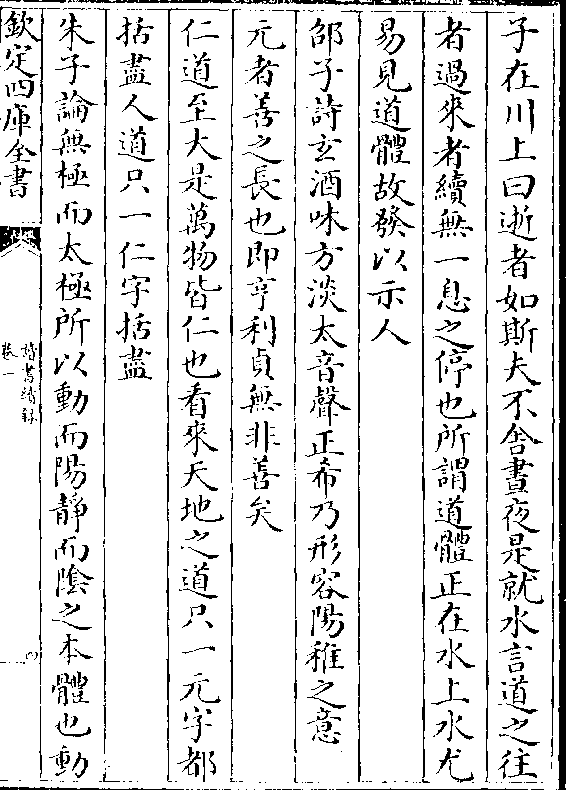 子在川上曰逝者如斯夫不舍晝夜是就水言道之往
者過來者續無一息之停也所謂道體正在水上水尤
易見道體故發以示人
邵子詩玄酒味方淡太音聲正希乃形容陽稚之意
元者善之長也即亨利貞無非善矣
仁道至大是萬物皆仁也看來天地之道只一元字都
括盡人道只一仁字括盡
朱子論無極而太極所以動而陽靜而陰之本體也動
欽定四庫全書
卷一